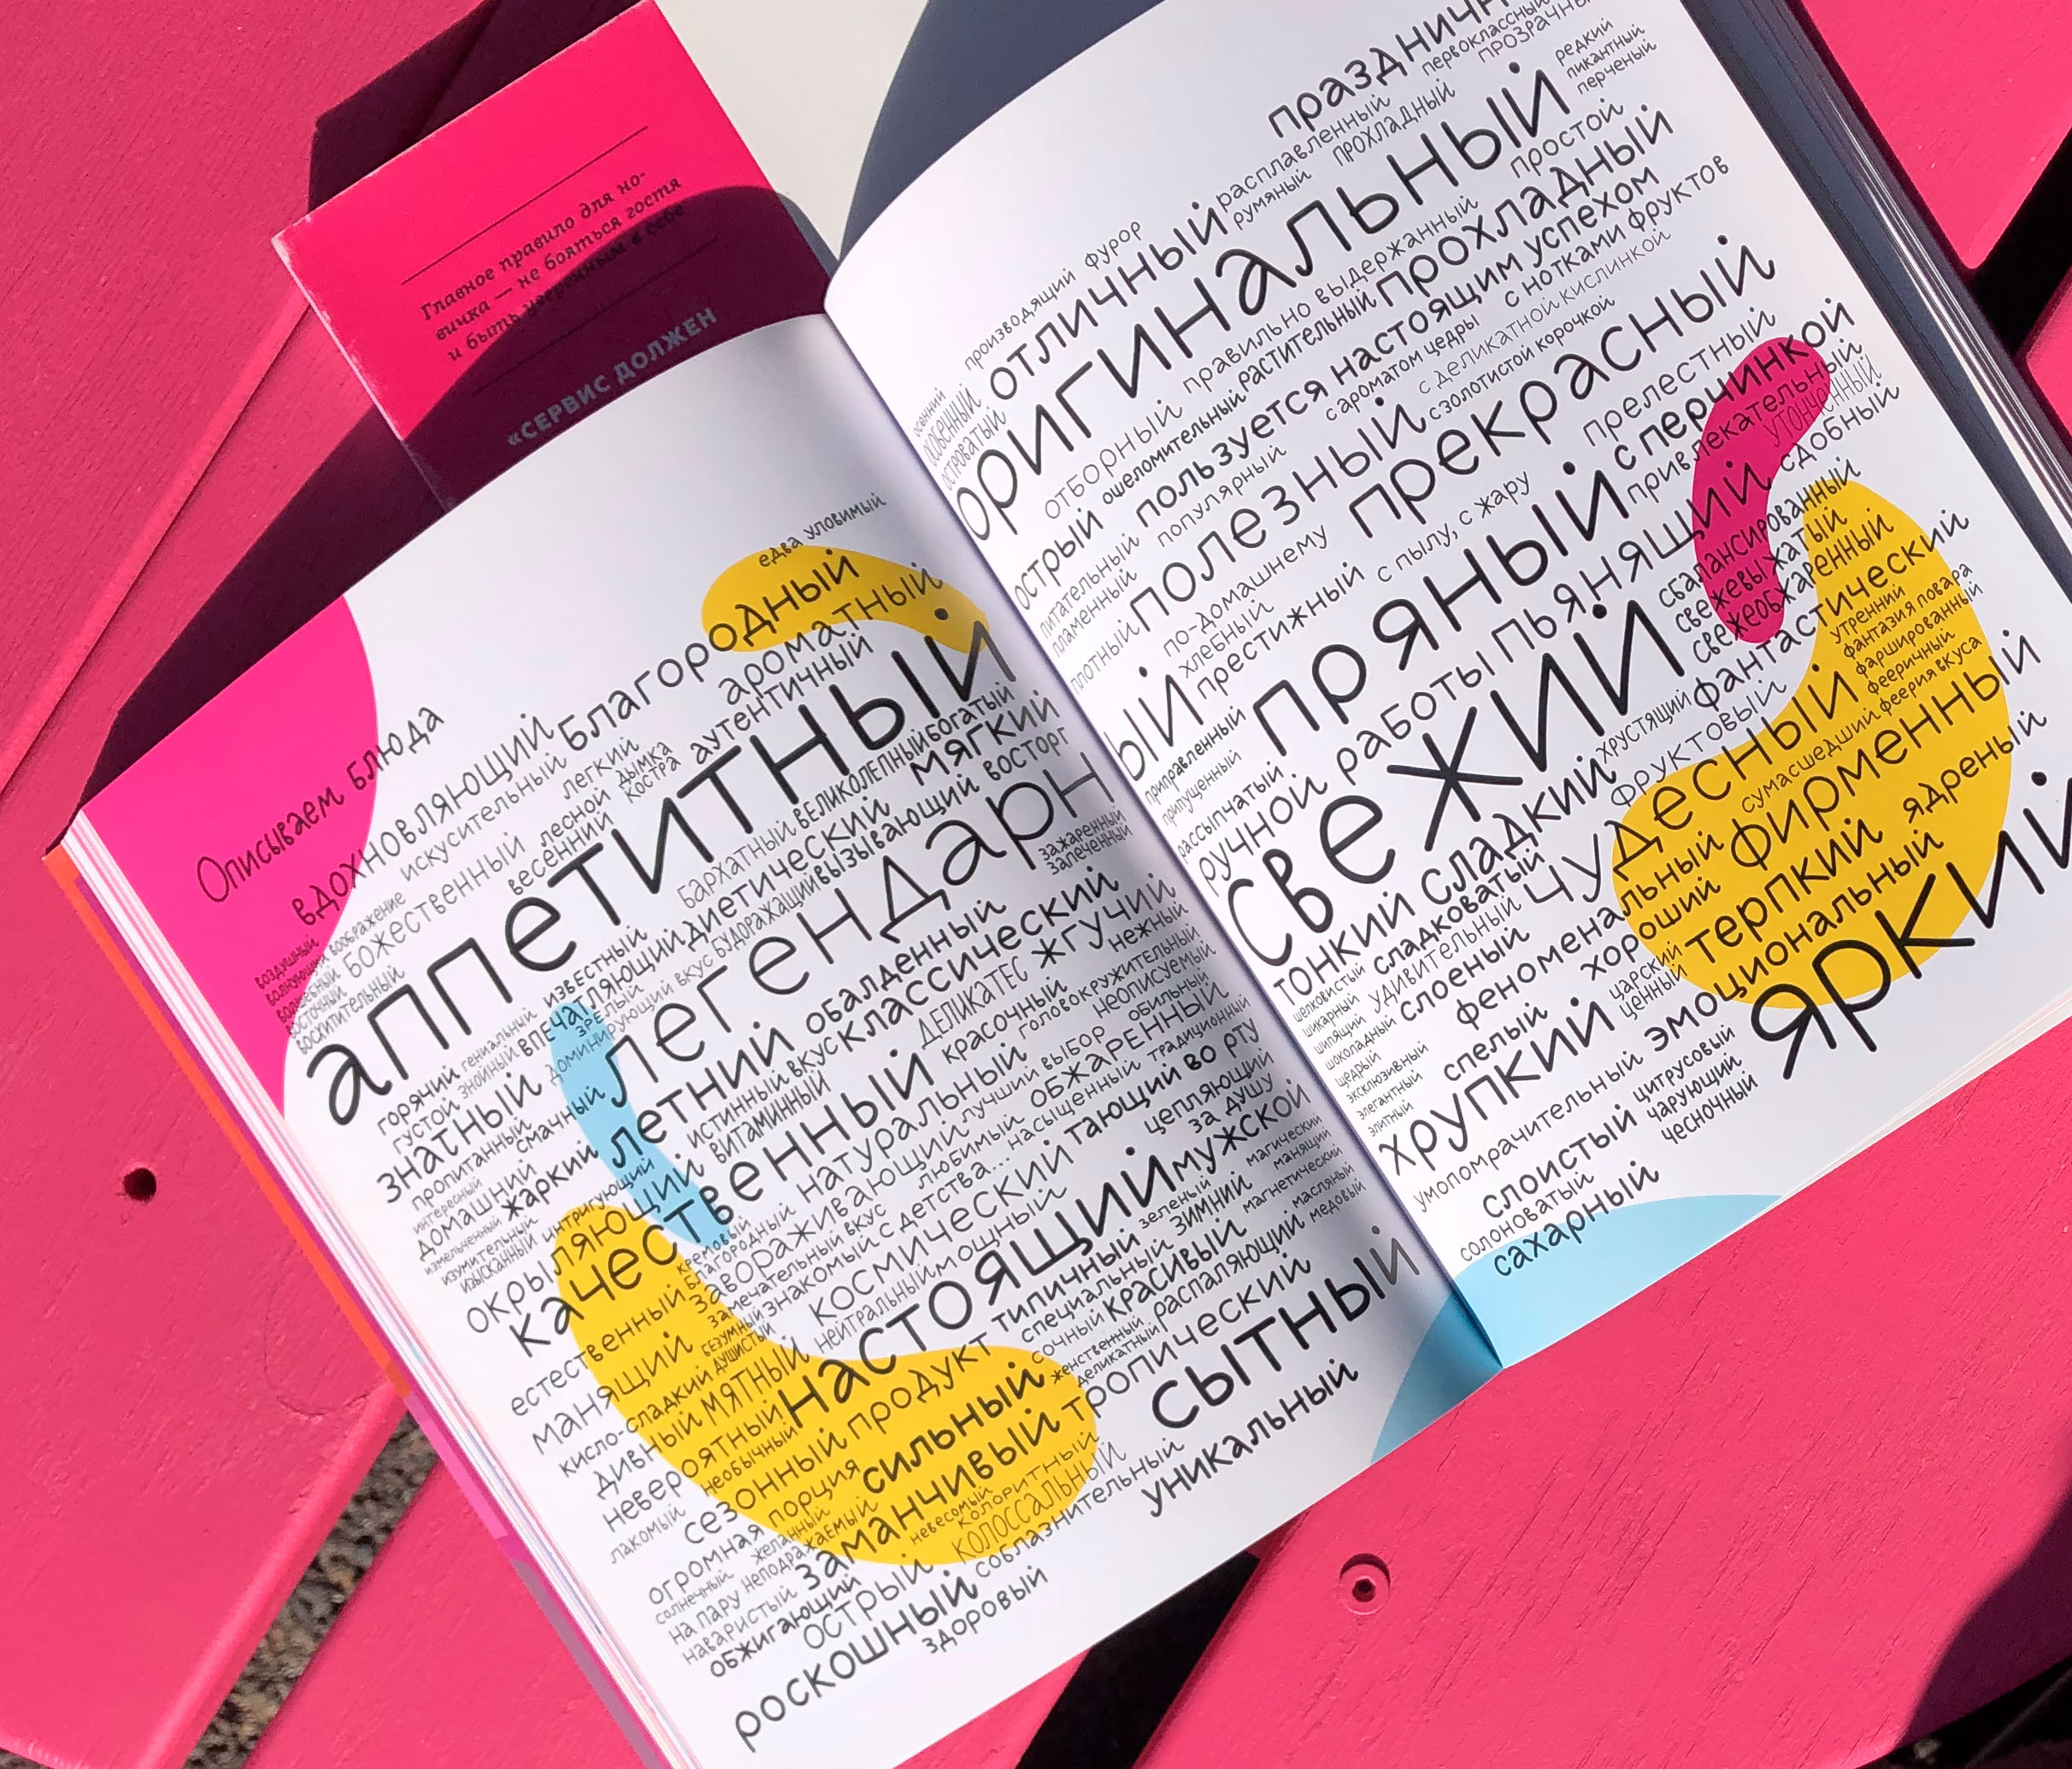 Главное правило для но-
вичка — не бояться гостя
и быть уверенным в себе
«СЕРВИС ДОЛЖЕН
Описываем блюда
едва уловимый
вдохновляющий благородный
искусительный легкий ароматный
воображение
божественный лесной дымка аутентичный
весенний костра
воздушный
волшебный
восточный
восхитительный
аппетитный
бархатный великолепный богатый
диетический мягкий
будоражащий вызывающий восторг
горячий гениальный известный
густой знойный впечатляющий
зрелый доминирующий вкус
знатный
легендарный
зажаренный
запеченный
пропитанный смачный
летний обалденный
домашний жаркий
интересный
измельченный
изумительный
изысканный интригующий
истинный вкус классический
витаминный
деликатес жгучий
нежный
окрыляющий
качественный
красочный головокружительный
неописуемый
естественный
кремовый
благородный натуральный
завораживающий лучший выбор обильный
замечательный вкус любимый обжаренный
знакомый с детства... насыщенный традиционный
манящий
безумный
душистый
нейтральный мощный
космический тающий во рту
цепляющий
за душу
кисло-сладкий
дивный мятный
настоящий мужской
невероятный
необычный
типичный зеленый магический
манящий
специальный зимний магнетический
сезонный продукт
сочный красивый масляный
медовый
женственный
деликатный распаляющий
лакомый
огромная порция сильный тропический
солнечный желанный
на пару неподражаемый
заманчивый
сытный
наваристый
невесомый
колоритный
обжигающий
острый колоссальный
соблазнительный
уникальный
роскошный
здоровый
первоклассный
прозрачный
редкий
пикантный
перченый
производящий фурор
расплавленный
румяный прохладный
осенний
особенный
островатый
отличный
оригинальный
простой
отборный правильно выдержанный
ошеломительный растительный прохладный
острый пользуется настоящим успехом
с ароматом цедры с нотками фруктов
питательный популярный
пламенный
с деликатной кислинкой
с золотистой корочкой
плотный полезный прекрасный
по-домашнему
хлебный
престижный с пылу, с жару
прелестный
с перчинкой
привлекательный
утонченный
приправленный
припущенный
пряный
сдобный
рассыпчатый
ручной работы пьянящий
сбалансированный
свежевыжатый
свежеобжаренный
свежий
хрустящий фантастический
фруктовый
утренний
фантазия повара
фаршированный
фееричный
феерия вкуса
тонкий сладкий
сладковатый
чудесный
сумасшедший
шелковистый
шикарный удивительный
шипящий
шоколадный слоеный
щедрый
феноменальный фирменный
эксклюзивный
элегантный
элитный
спелый хороший
царский
ценный
терпкий ядреный
хрупкий
эмоциональный
умопомрачительный
яркий
цитрусовый
слоистый чарующий
чесночный
солоноватый
сахарный